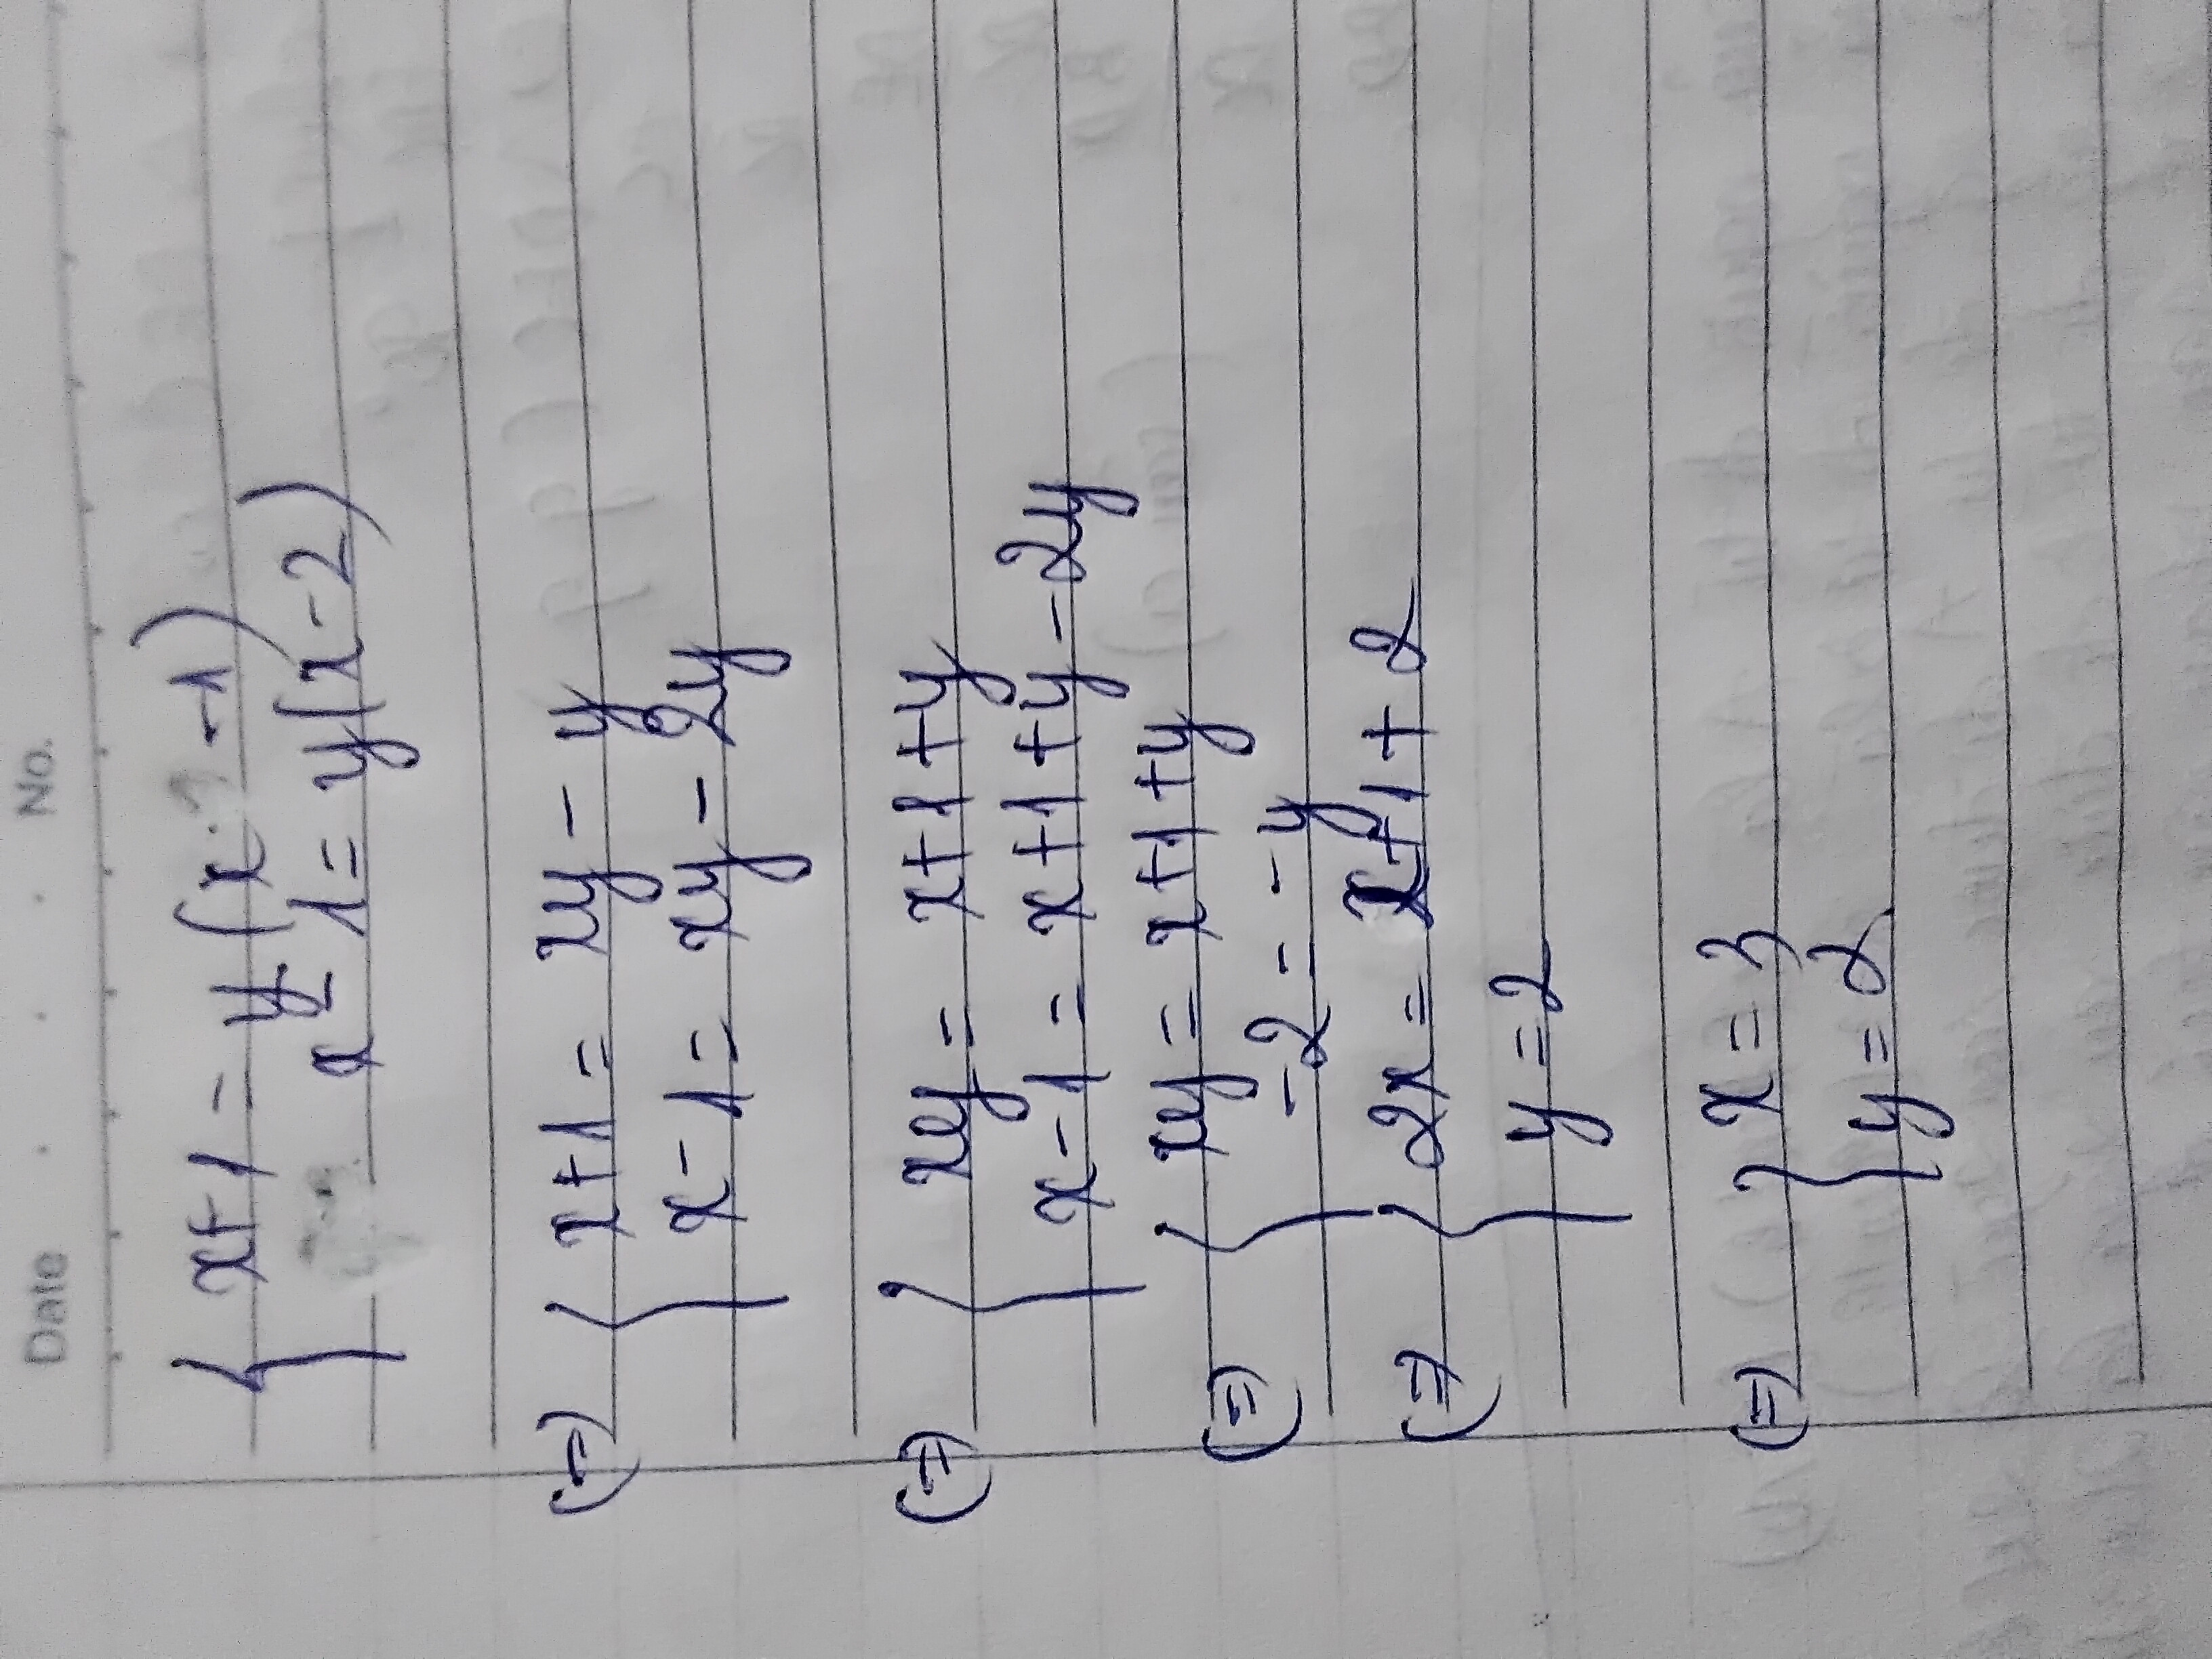 Date . . No.
x+1 = y(x-1)
x-1 = y(x-2)
(=) { x+1 = xy - y
x-1 = xy - 2y
(=) { xy = x+1+y
x-1 = x+1+y-2y
(=) { xy = x+1+y
-2 = -y
(=) { 2x = x+1+2
y = 2
(=) { x = 3
y = 2